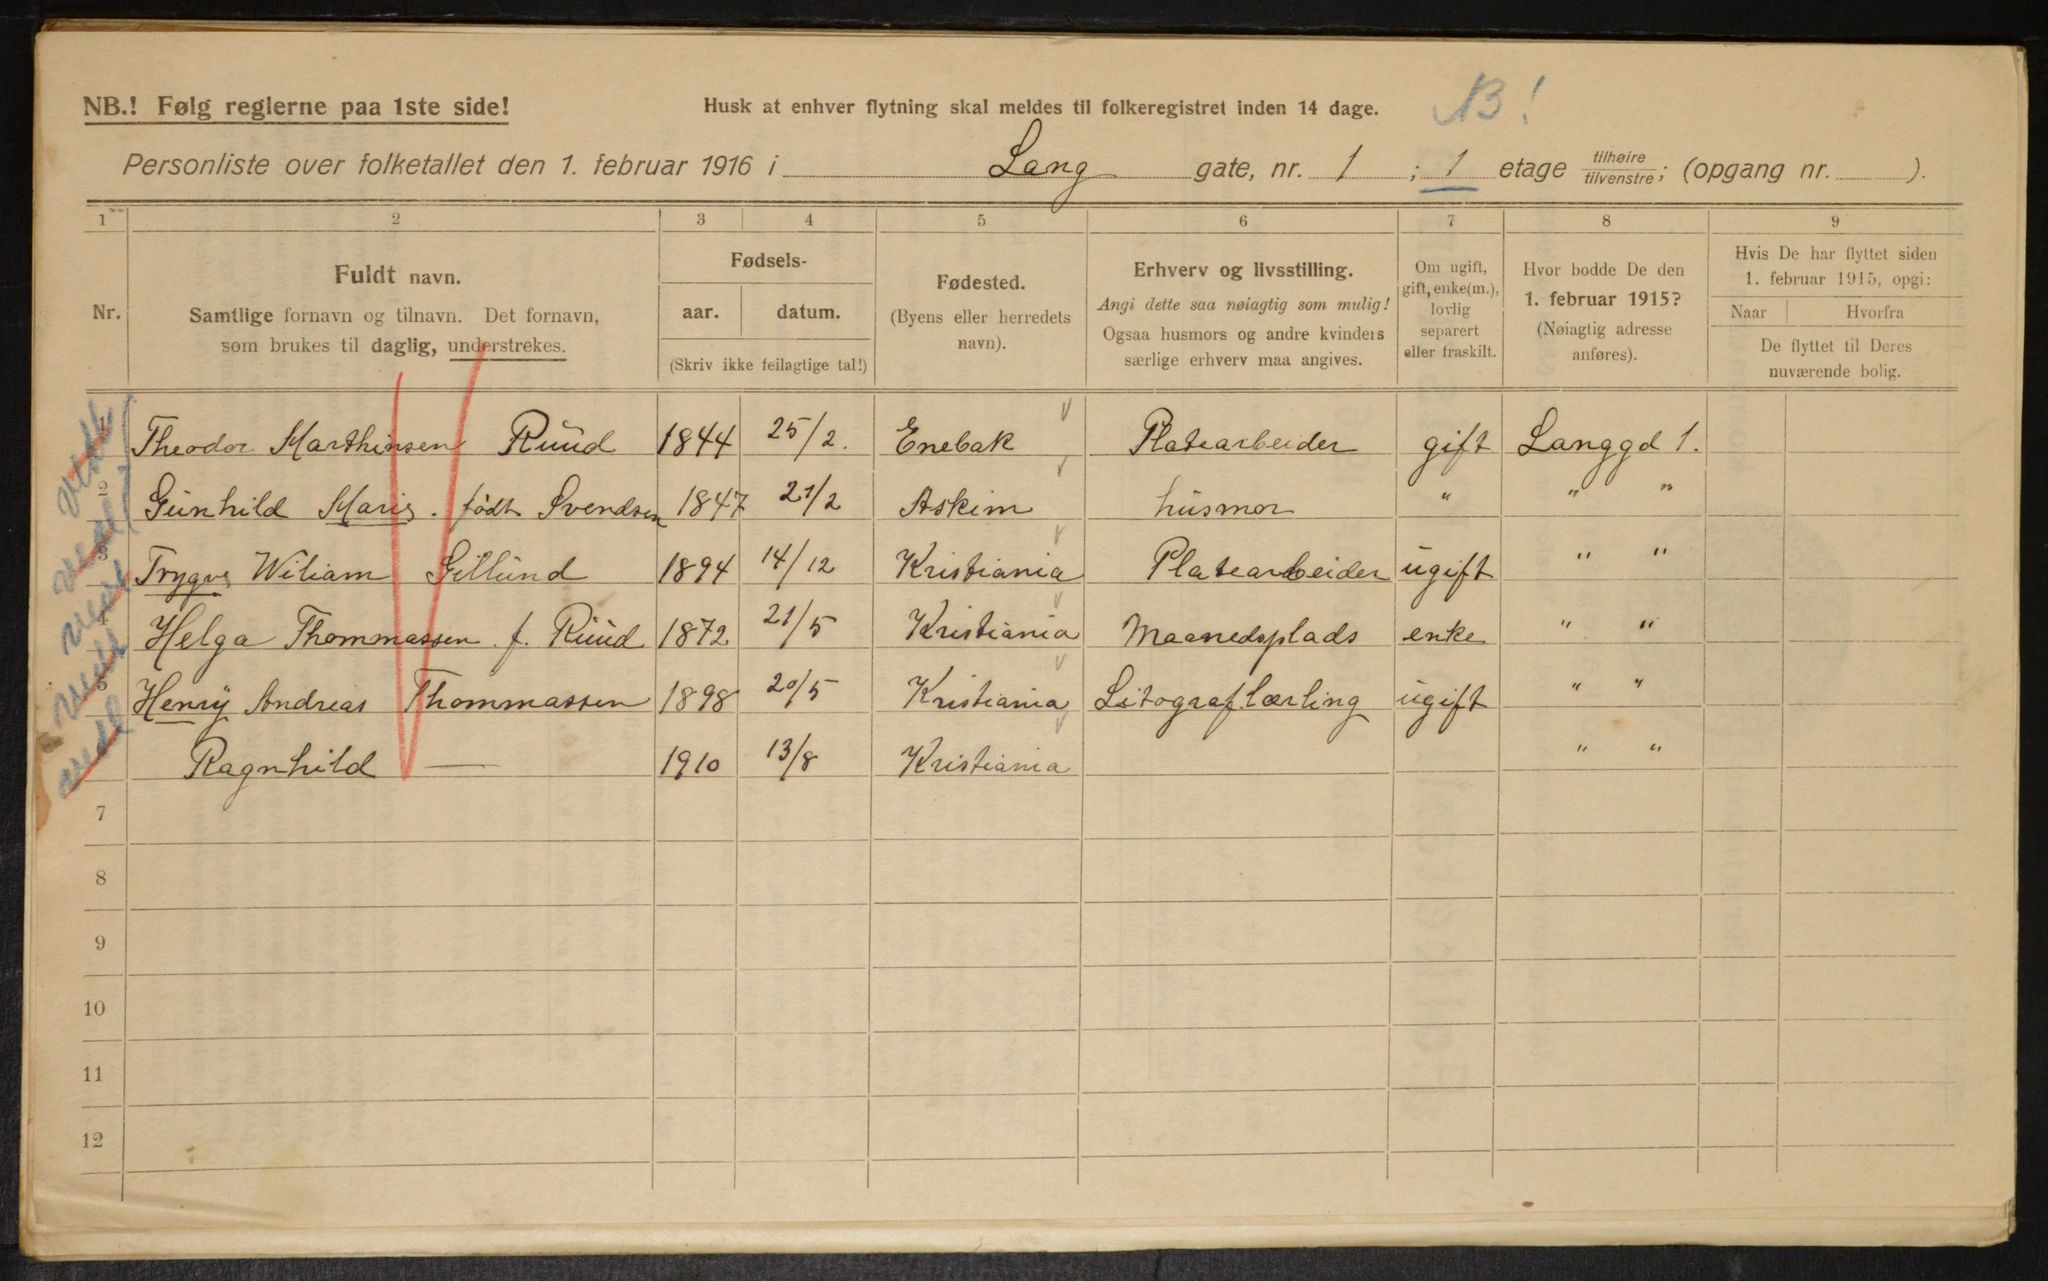 NB.! Følg reglerne paa 1ste side!
Husk at enhver flytning skal meldes til folkeregistret inden 14 dage.
NB!
Personliste over folketallet den 1. februar 1916 i Lang gate, nr. 1 ; 1 etage tilhøire/tilvenstre; (opgang nr. ).
1 2 3 4 5 6 7 8 9
Nr.
Fuldt navn.
Samtlige fornavn og tilnavn. Det fornavn,
som brukes til daglig, understrekes.
Fødsels-
aar. datum.
(Skriv ikke feilagtige tal!)
Fødested.
(Byens eller herredets
navn).
Erhverv og livsstilling.
Angi dette saa nøiagtig som mulig!
Ogsaa husmors og andre kvinders
særlige erhverv maa angives.
Om ugift,
gift, enke(m.),
lovlig
separert
eller fraskilt.
Hvor bodde De den
1. februar 1915?
(Nøiagtig adresse
anføres).
Hvis De har flyttet siden
1. februar 1915, opgi:
Naar Hvorfra
De flyttet til Deres
nuværende bolig.
1 Theodor Marthinsen Ruud 1844 25/2. Enebak Platearbeider gift Langgd 1.
2 Gunhild Marie. født Svendsen 1847 21/2 Askim husmor " " "
3 Trygve Wiliam Gillund 1894 14/12 Kristiania Platearbeider ugift " "
4 Helga Thommassen f. Ruud 1872 21/5 Kristiania Maanedsplads enke " "
5 Henry Andreas Thommassen 1898 20/5 Kristiania Litograflærling ugift " "
Ragnhild — 1910 13/8 Kristiania " "
7
8
9
10
11
12